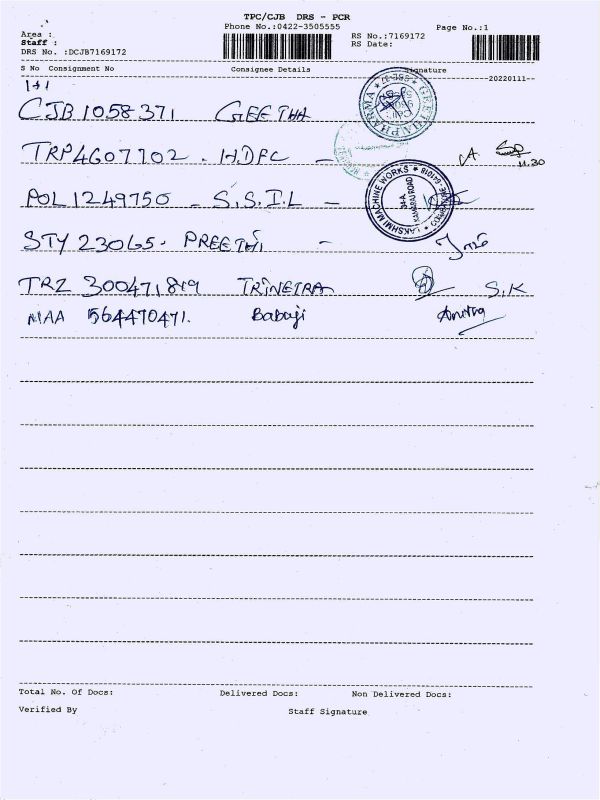 TPC/CJB DRS - PCR
Phone No.:0422-3505555 Page No.:1
Area :
Staff :
RS No.:7169172
RS Date:
DRS No. :DCJB7169172
S No Consignment No Consignee Details Signature
20220111
1+1
CJB1058371 GEETHA
GEETHA PHARMA
TRP4607702 - HDFC -
11.30
POL1249750 - S.S.I.L -
LAKSHMI MACHINE WORKS
34-A
KAMARAJ ROAD
STY 23065 - PREETHI -
TRZ 300471819 TRINETRA S.K
MAA 564470471. Babaji
Total No. Of Docs: Delivered Docs: Non Delivered Docs:
Verified By Staff Signature